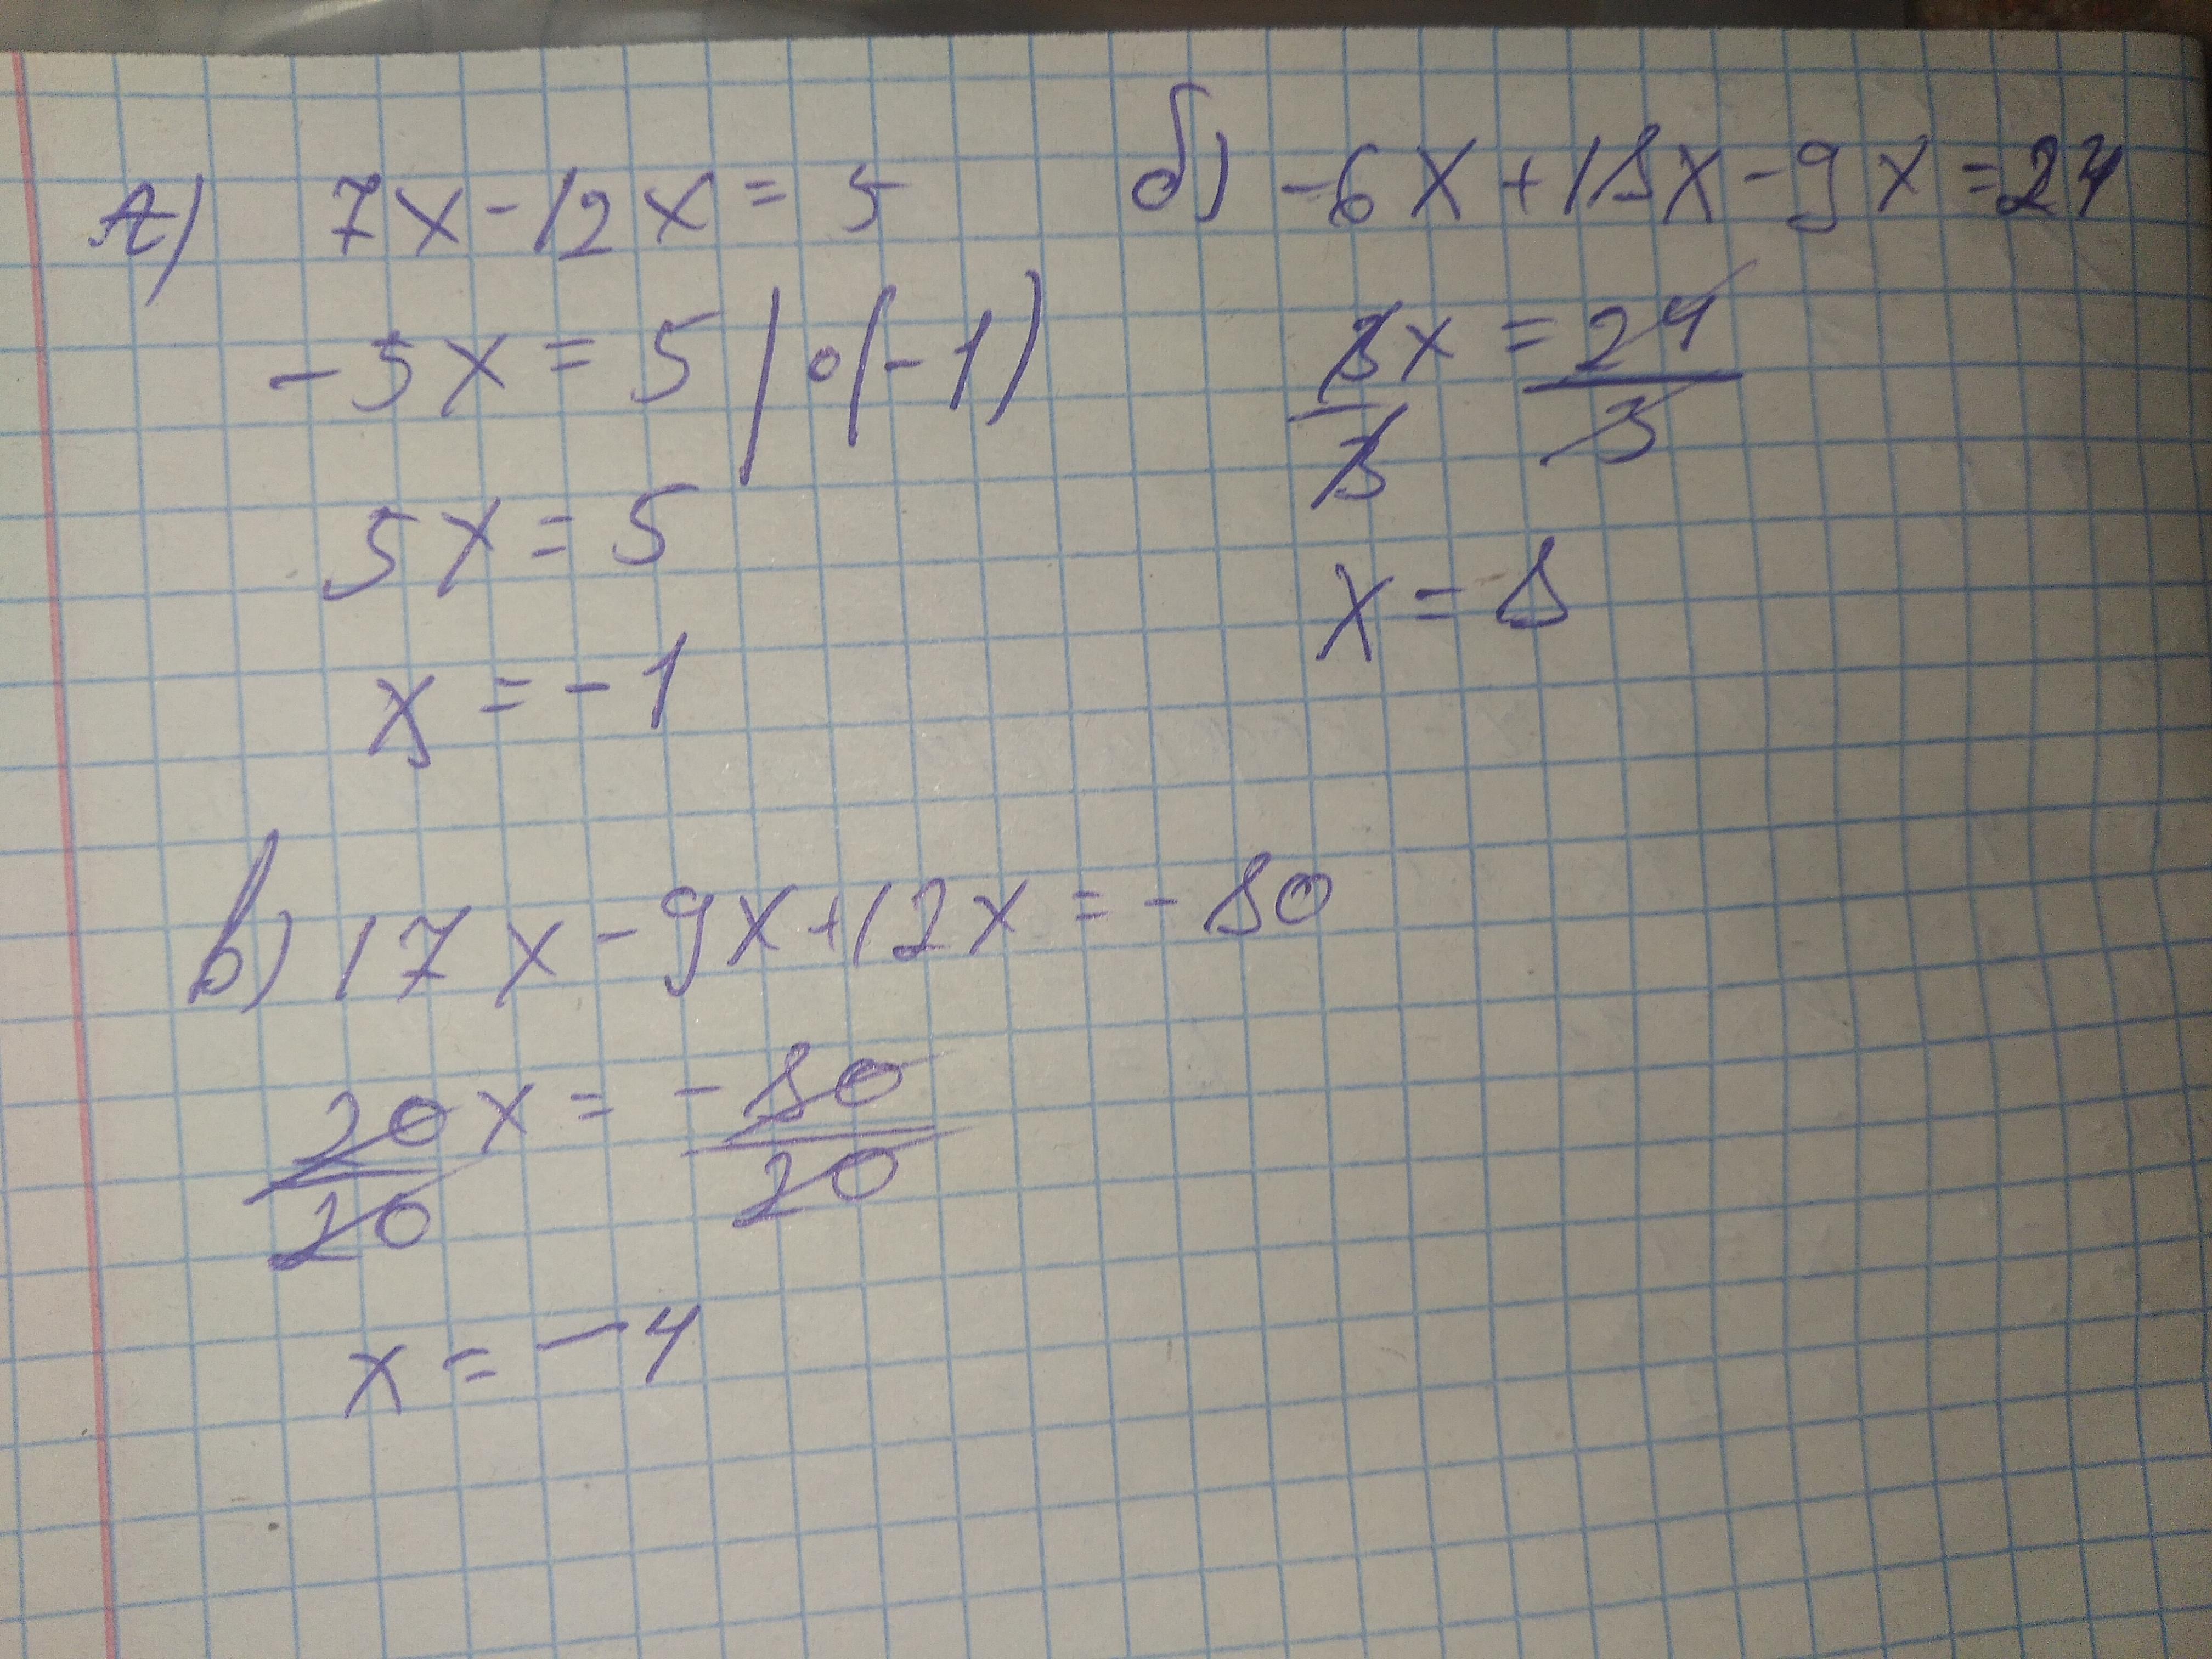 А) 7x - 12x = 5
-5x = 5 | ∘(-1)
5x = 5
x = -1
б) -6x + 18x - 9x = 24
3x/3 = 24/3
x = 8
в) 17x - 9x + 12x = -80
20x/20 = -80/20
x = -4